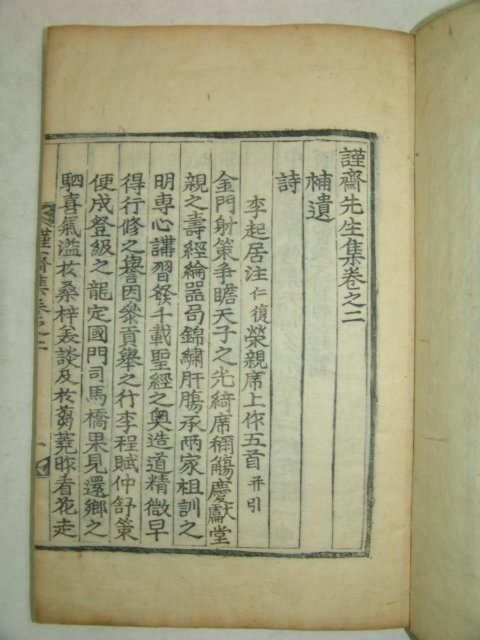 謹齋先生集卷之二
補遺
詩
李起居注仁復榮親席上作五首并引
金門射策爭瞻天子之光綺席稱觴慶獻堂
親之壽經綸器局錦繡肝膓承两家祖訓之
明專心講習發千載聖經之奧造道精微早
得行修之譽因參貢舉之行李程賦仲舒策
便成登級之龍定國門司馬橋果見還鄉之
駟喜氣溢於桑梓羙談及於蒭蕘昨看花走
謹齋集卷之二
一